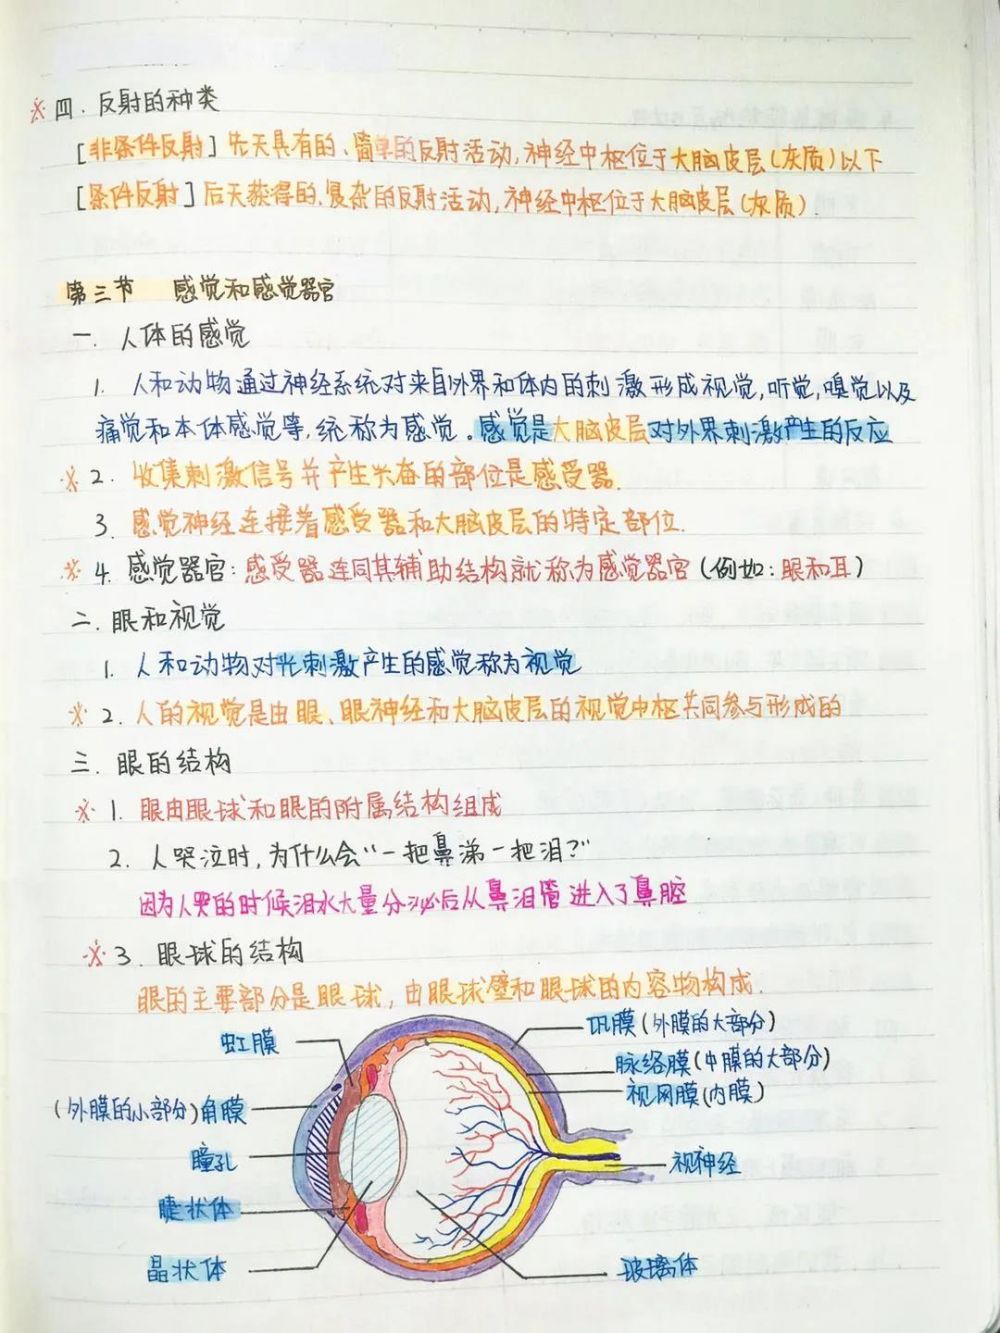 ※四. 反射的种类
[非条件反射] 先天具有的、简单的反射活动,神经中枢位于大脑皮层(灰质)以下
[条件反射] 后天获得的、复杂的反射活动,神经中枢位于大脑皮层(灰质).
第三节 感觉和感觉器官
一. 人体的感觉
1. 人和动物通过神经系统对来自外界和体内的刺激形成视觉,听觉,嗅觉以及
痛觉和本体感觉等,统称为感觉。感觉是大脑皮层对外界刺激产生的反应
※2. 收集刺激信号并产生兴奋的部位是感受器.
3. 感觉神经连接着感受器和大脑皮层的特定部位.
※4. 感觉器官:感受器连同其辅助结构就称为感觉器官(例如:眼和耳)
二. 眼和视觉
1. 人和动物对光刺激产生的感觉称为视觉
※2. 人的视觉是由眼、眼神经和大脑皮层的视觉中枢共同参与形成的
三. 眼的结构
※1. 眼由眼球和眼的附属结构组成
2. 人哭泣时,为什么会“一把鼻涕一把泪?”
因为人哭的时候泪水大量分泌后从鼻泪管进入了鼻腔
※3. 眼球的结构
眼的主要部分是眼球,由眼球壁和眼球的内容物构成.
巩膜(外膜的大部分)
虹膜
脉络膜(中膜的大部分)
视网膜(内膜)
(外膜的小部分)角膜
瞳孔
视神经
睫状体
晶状体
玻璃体